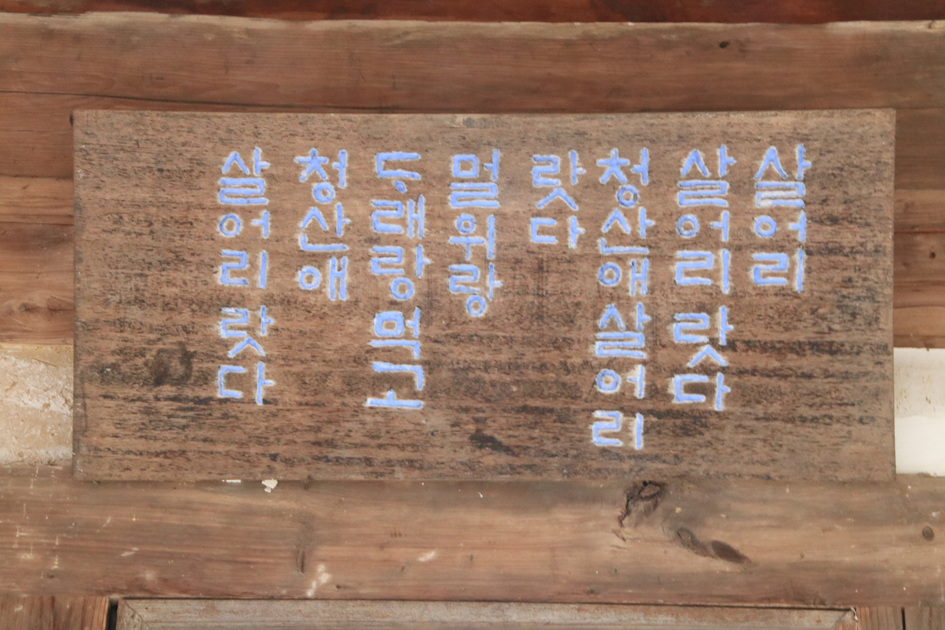 살어리
살어리 랏다
청산애살어리
랏다
멀위랑
ᄃᆞ래랑 먹고
청산애
살어리 랏다